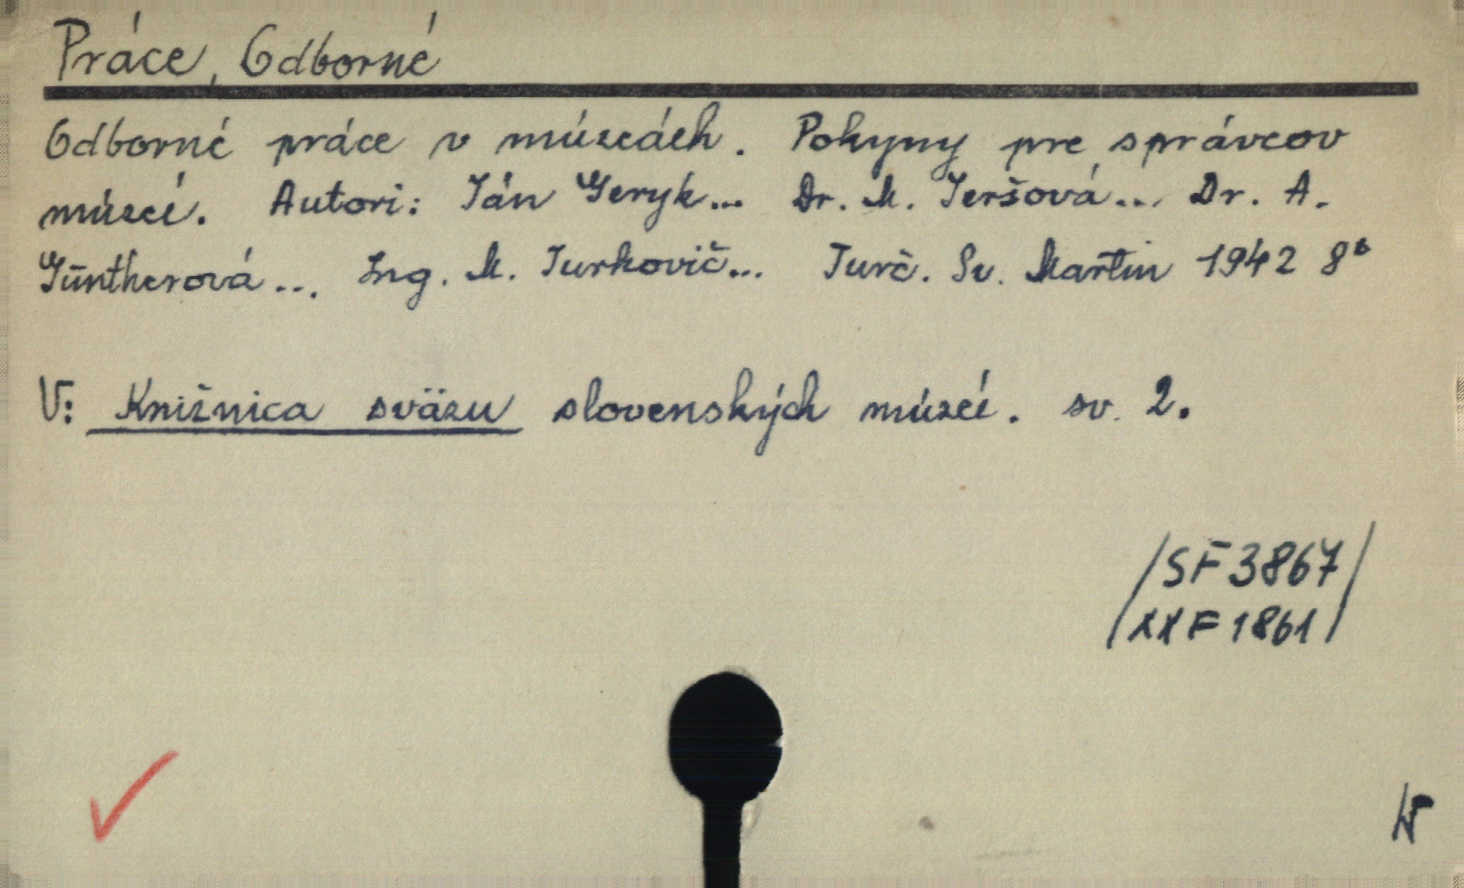 Práce, Odborné
Odborné práce v múzeách. Pokyny pre správcov
múzeí. Autori: Ján Geryk... Dr. M. Jeršová... Dr. A.
Güntherová... Ing. M. Jurkovič... Turč. Sv. Martin 1942 8°
V: Knižnica sväzu slovenských múzeí. sv. 2.
/SF 3867/
/XX F 1861/